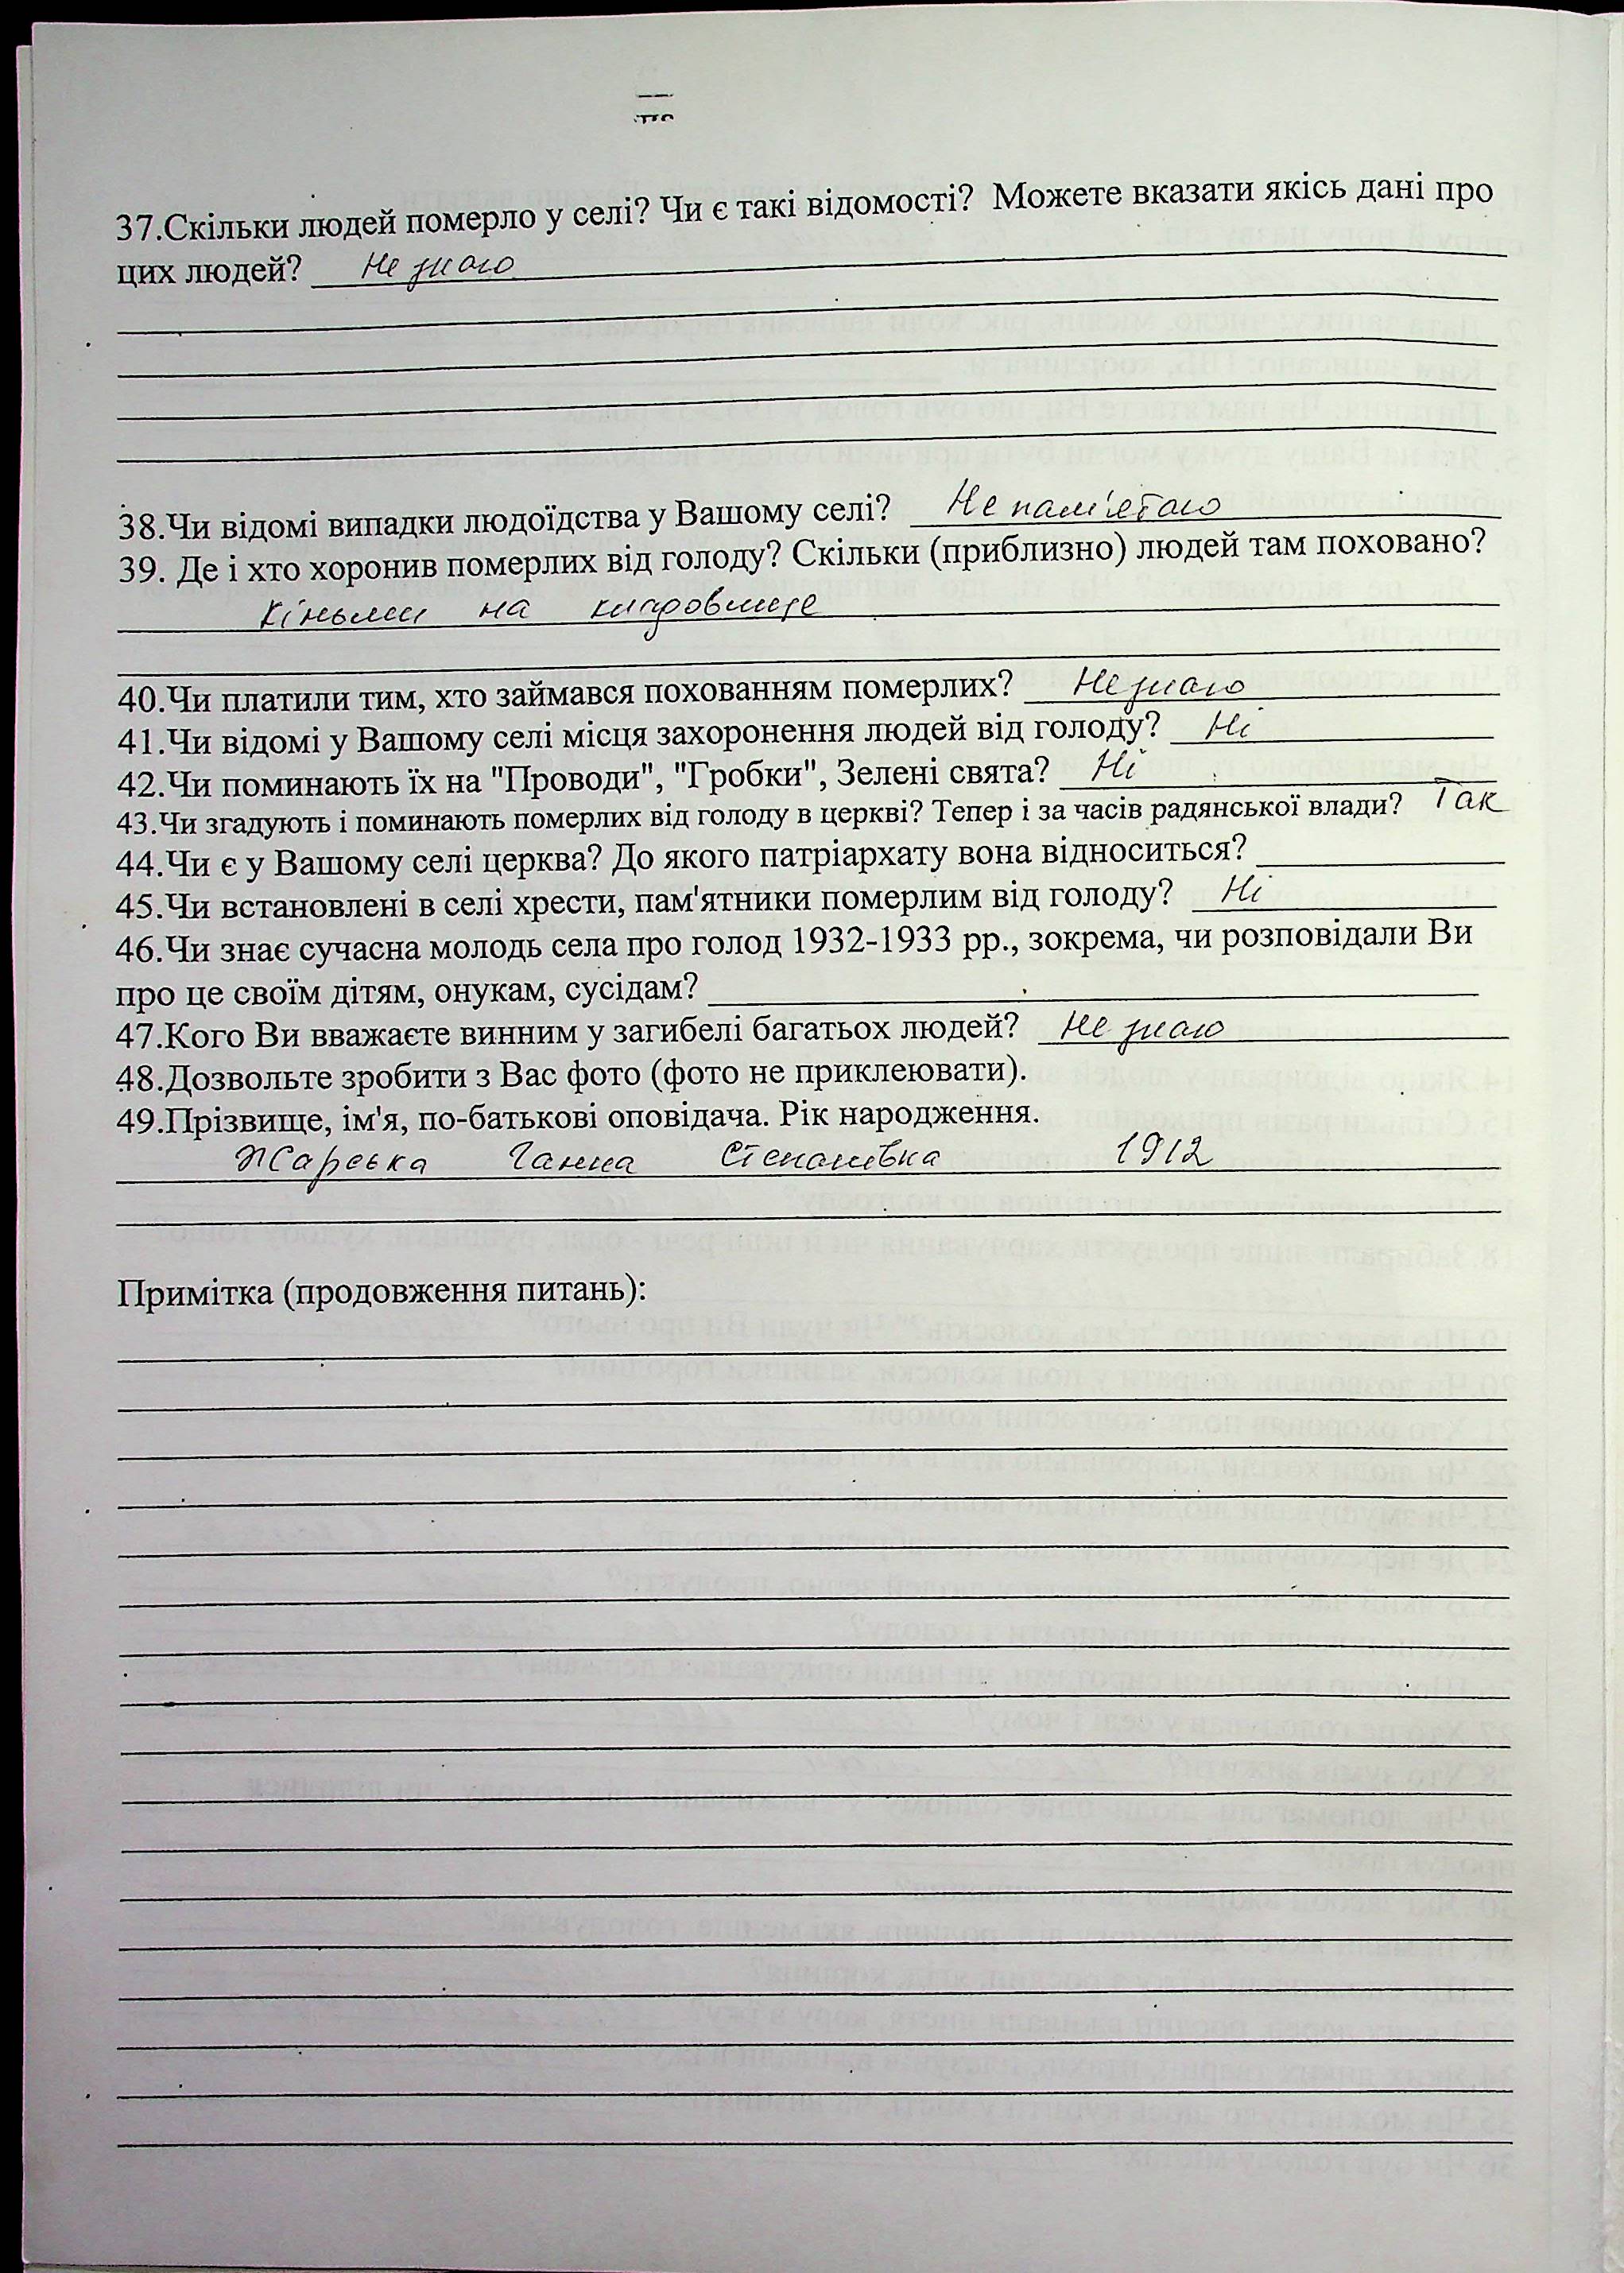 37.Скільки людей померло у селі? Чи є такі відомості? Можете вказати якісь дані про
цих людей? Не знаю
38.Чи відомі випадки людоїдства у Вашому селі? Не пам'єтаю
39. Де і хто хоронив померлих від голоду? Скільки (приблизно) людей там поховано?
Кіньми на
40.Чи платили тим, хто займався похованням померлих? Не знаю
41.Чи відомі у Вашому селі місця захоронення людей від голоду? Ні
42.Чи поминають їх на "Проводи", "Гробки", Зелені свята? Ні
43.Чи згадують і поминають померлих від голоду в церкві? Тепер і за часів радянської влади? Так
44.Чи є у Вашому селі церква? До якого патріархату вона відноситься?
45.Чи встановлені в селі хрести, пам'ятники померлим від голоду? Ні
46.Чи знає сучасна молодь села про голод 1932-1933 рр., зокрема, чи розповідали Ви
про це своїм дітям, онукам, сусідам?
47.Кого Ви вважаєте винним у загибелі багатьох людей? Не знаю
48.Дозвольте зробити з Вас фото (фото не приклеювати).
49.Прізвище, ім'я, по-батькові оповідача. Рік народження.
Ганна Степанівна 1912
Примітка (продовження питань):